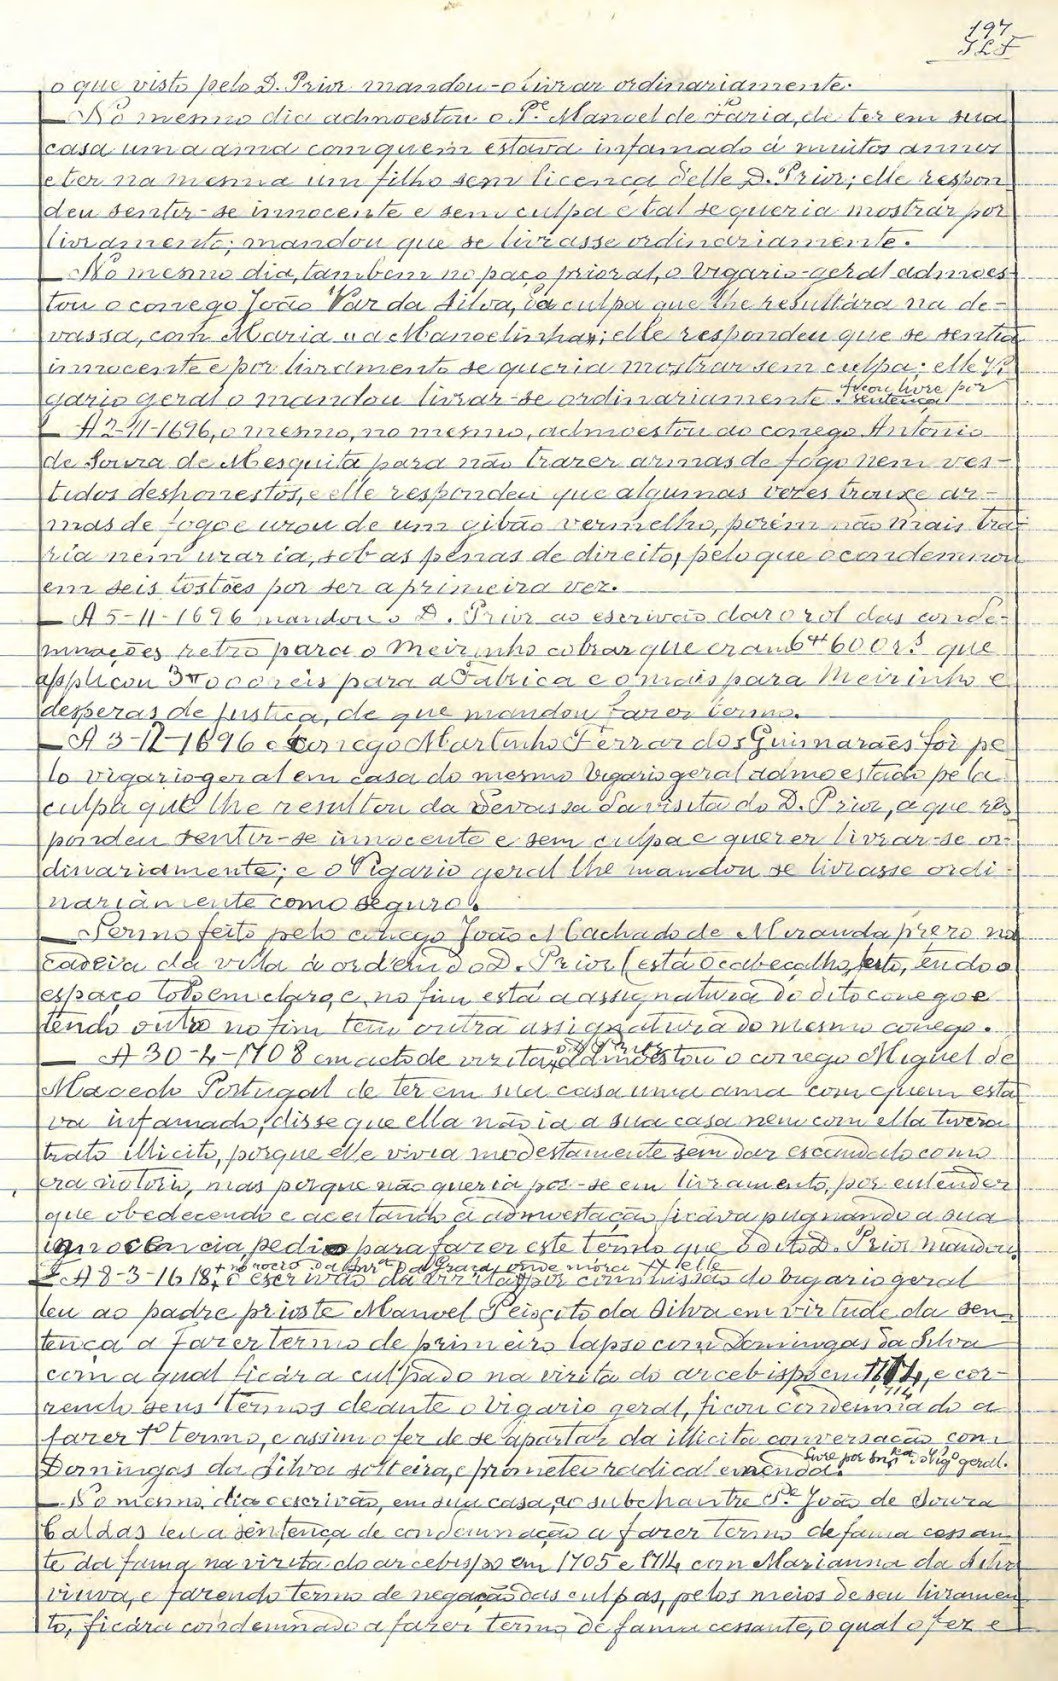 197
o que visto pelo D. Prior mandou-o livrar ordinariamente.
— No mesmo dia admoestou o P.e Manoel de Faria, de ter em sua
casa uma ama com quem estava infamado á muitos annos
e ter na mesma um filho sem licença delle D. Prior; elle respon-
deu sentir-se innocente e sem culpa e tal se queria mostrar por
livramento; mandou que se livrasse ordinariamente.
— No mesmo dia, tambem no paço prioral, o vigario-geral admoes-
tou o conego João Vaz da Silva, da culpa que lhe resultára na de-
vassa, com Maria "a Manoelinha"; elle respondeu que se sentia
innocente e por livramento se queria mostrar sem culpa; elle Vi-
gario geral o mandou livrar-se ordinariamente. ficou livre por
sentença
— A 2-11-1696, o mesmo, no mesmo, admoestou ao conego Antonio
de Souza de Mesquita para não trazer armas de fogo nem ves-
tidos deshonestos, e elle respondeu que algumas vezes trouxe ar-
mas de fogo e uzou de um gibão vermelho, porém não mais tra-
ria nem uzaria, sob as penas de direito, pelo que o condemnou
em seis tostões por ser a primeira vez.
— A 5-11-1696 mandou o D. Prior ao escrivão dar o rol das conde-
mnações retro para o Meirinho cobrar que eram 6$600 rs. que
applicou 3$000 reis para a Fabrica e o mais para Meirinho e
despezas de justiça, de que mandou fazer termo.
— A 3-12-1696 o conego Martinho Ferraz dos Guimarães foi pe-
lo vigario geral em casa do mesmo vigario geral admoestado pela
culpa que lhe resultou da devassa da visita do D. Prior, a que res-
pondeu sentir-se innocente e sem culpa e querer livrar-se or-
dinariamente; e o Vigario geral lhe mandou se livrasse ordi-
nariamente como seguro.
— Termo feito pelo conego João Machado de Miranda prezo na
cadeia da villa á ordem do D. Prior (está o cabeçalho, feito, tendo o
espaço todo em claro, e, no fim está a assignatura do dito conego e
tendo outro no fim tem outra assignatura do mesmo conego.
— A 30-4-1708 em acto de vizita, o D. Prior admoestou o conego Miguel de
Macedo Portugal de ter em sua casa uma ama com quem esta-
va infamado; disse que ella não ia a sua casa nem com ella tivera
trato illicito, porque elle vivia modestamente sem dar escandalo como
era notorio, mas porque não queria pôr-se em livramento, por entender
que obedecendo e aceitando a admoestação ficava pugnando a sua
ignocencia, pedio para fazer este termo que o dito D. Prior mandou.
+ no rocio da Snr.a da Graça, onde mora elle
— A 8-3-1618, + o escrivão da vizita, por commissão do vigario geral
leu ao padre prioste Manoel Peixoto da Silva em virtude da sen-
tença a fazer termo de primeiro lapso com Domingas da Silva
com a qual ficára culpado na vizita do arcebispo em 1714, e cor-
1714
rendo seus termos deante o vigario geral, ficou condemnado a
fazer 1º termo, e assim o fez de se apartar da illicita conversação com
Domingas da Silva solteira, e prometeu radical emenda. Livre por snr.ça do Vigº geral.
— No mesmo dia o escrivão, em sua casa, ao subchantre P.e João de Souza
Caldas leu a sentença de condemnação a fazer termo de fama cessan-
te da fama na vizita do arcebispo em 1705 e 1714 com Marianna da Silva
viuva, e fazendo termo de negação das culpas, pelos meios de seu livramen-
to, ficára condemnado a fazer termo de fama cessante, o qual o fez e